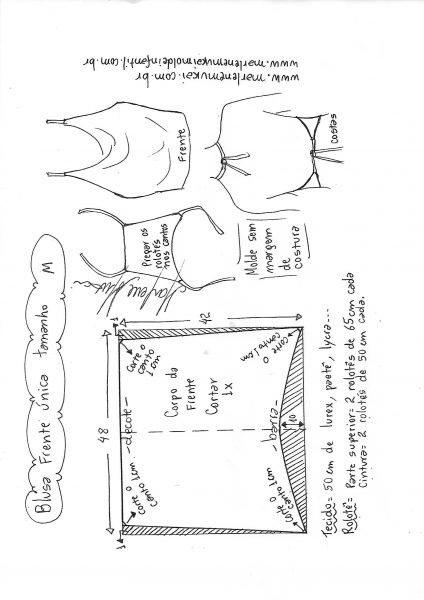 www.marlenemukai.com.br
www.marlenemukaimoldeinfantil.com.br
Blusa Frente única tamanho M
Frente
costas
Pregar os
rolotês
nos cantos
Molde sem
margem
de
costura
Marlene Mukai
48
42
1
1
decote
Corte o
canto 1cm
Corte o
canto 1cm
Corpo da
Frente
Cortar
1x
barra
10
Corte o
canto 1cm
Corte o
canto 1cm
Tecido = 50 cm de lurex, paetê, lycra---
Rolotê = Parte superior = 2 rolotês de 65cm cada
Cintura = 2 rolotês de 50 cm cada.